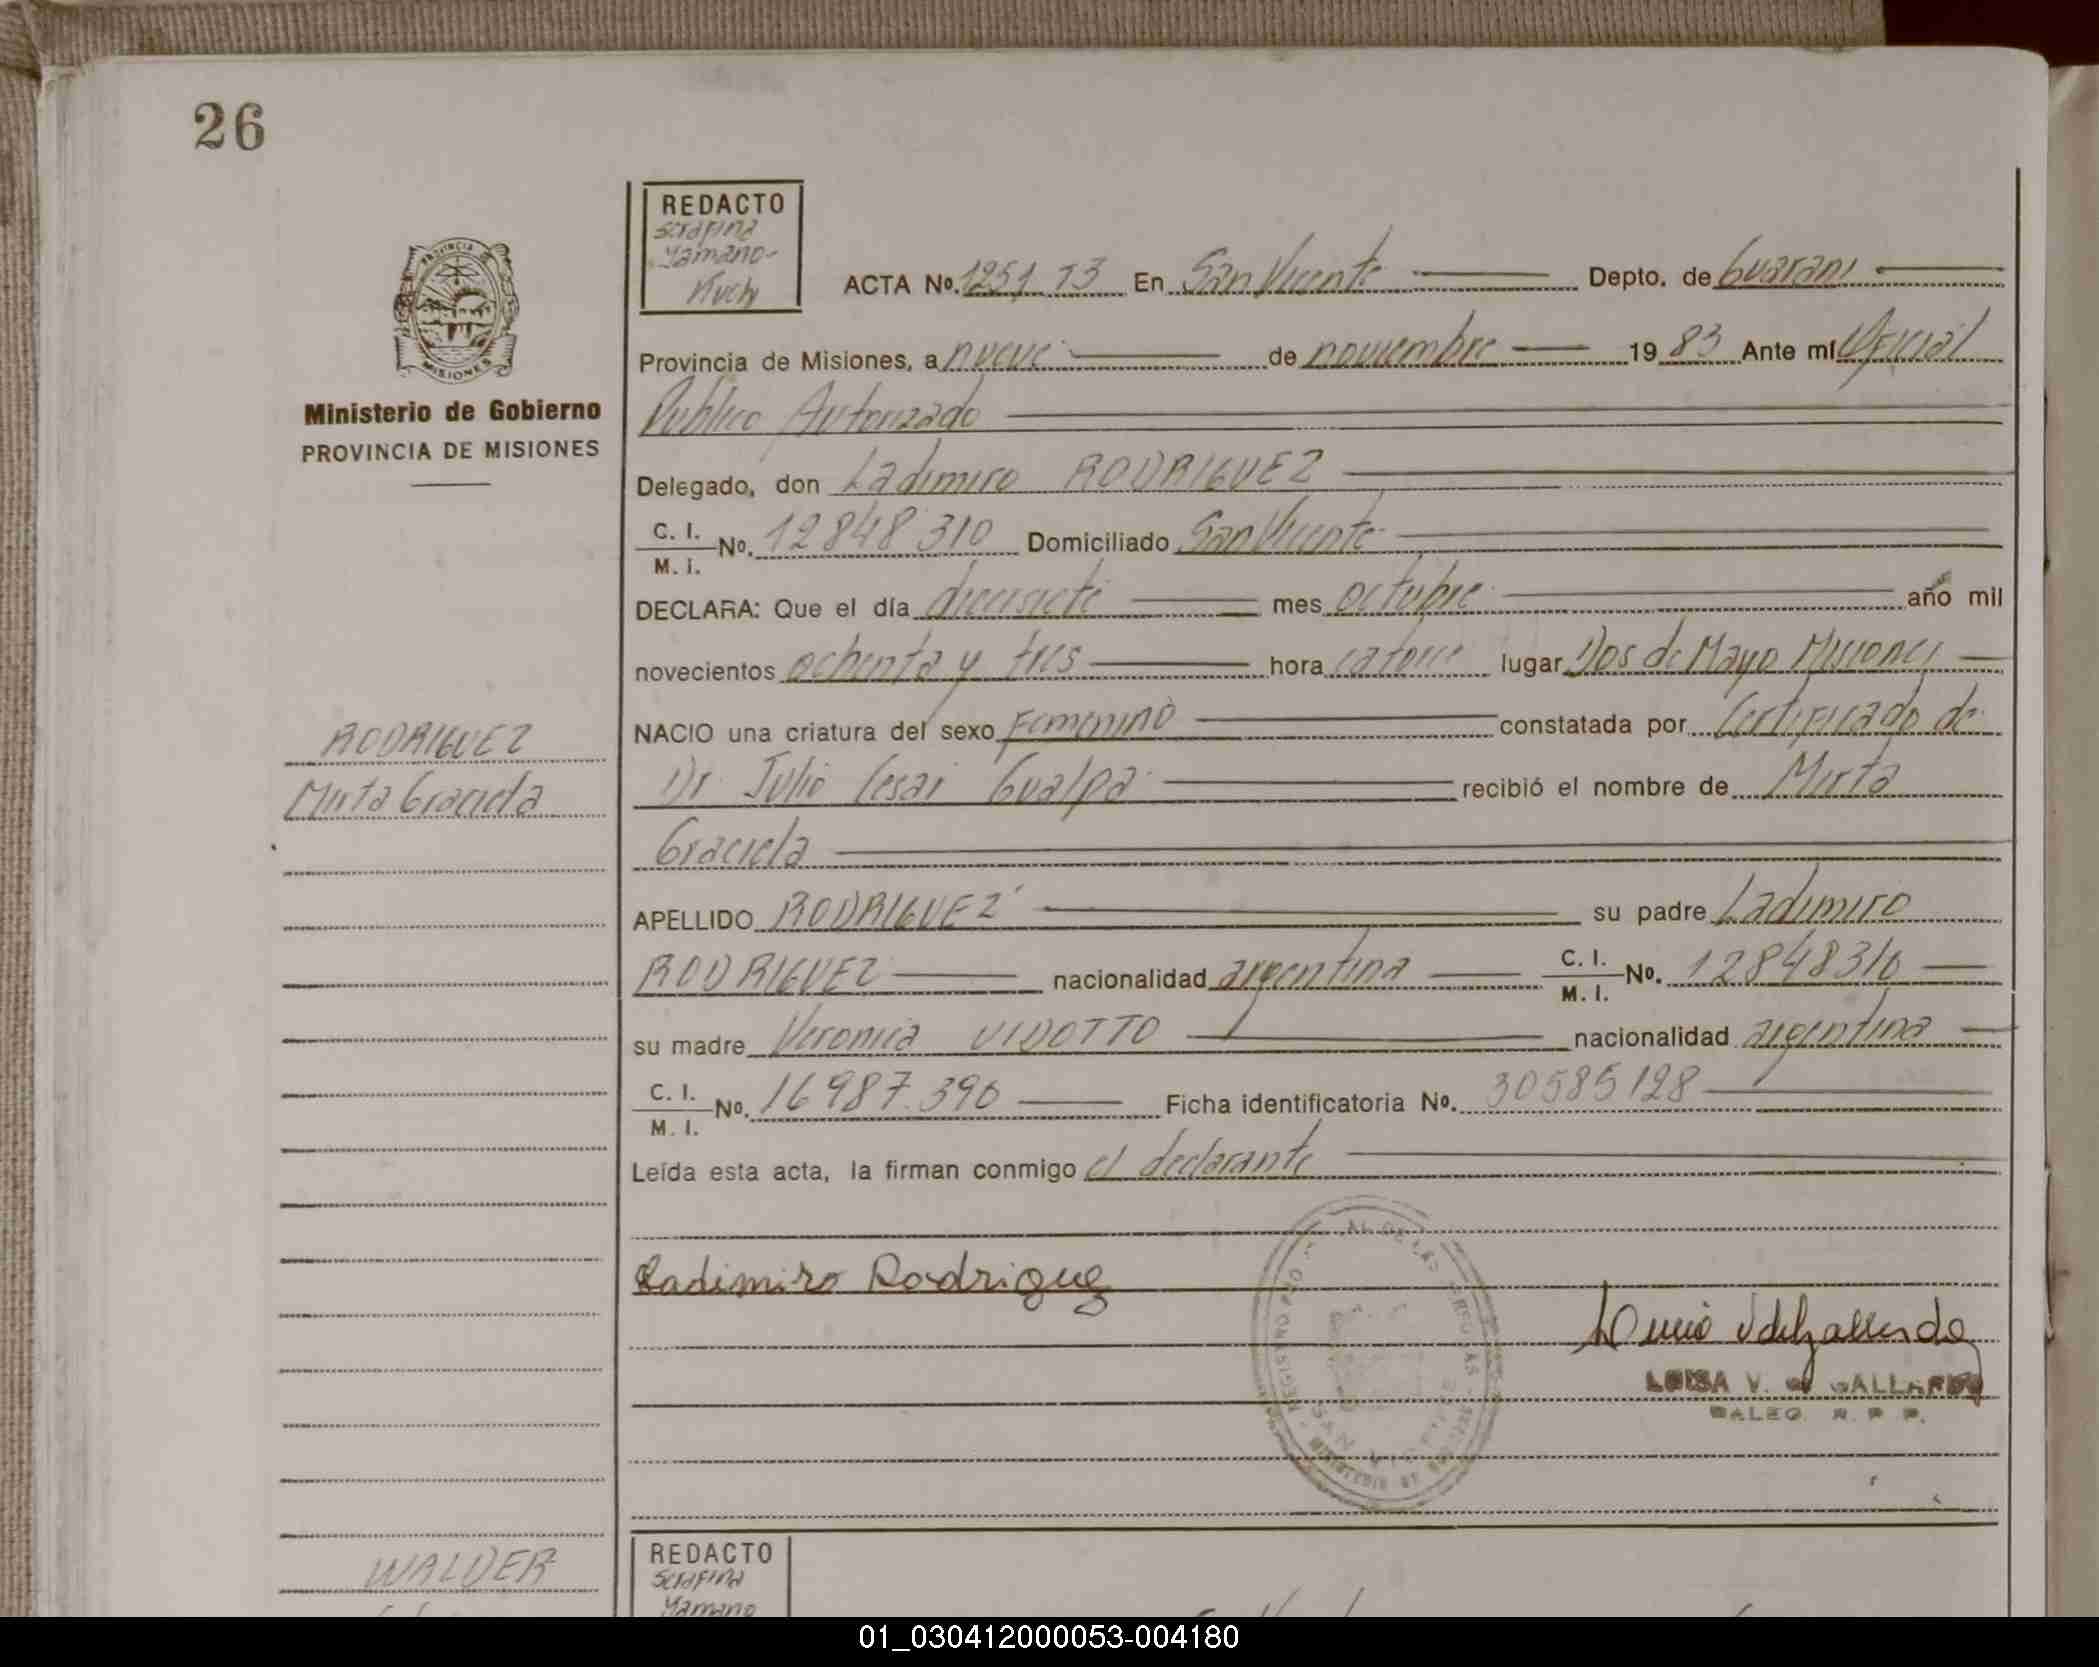 26
REDACTO
Serafina
Yamano-
ACTA No. 1251 T3 En San Vicente Depto. de Guarani
Provincia de Misiones, a nueve de noviembre 1983 Ante mí Oficial
Publico Autorizado
Ministerio de Gobierno
PROVINCIA DE MISIONES
Delegado, don Ladimiro RODRIGUEZ
C. I.
M. I. No. 12848310 Domiciliado San Vicente
DECLARA: Que el día diecisiete mes octubre año mil
novecientos ochenta y tres hora catorce lugar Dos de Mayo Misiones
RODRIGUEZ
Mirta Graciela
NACIO una criatura del sexo Femenino constatada por Certificado de
Dr. Julio Cesar Gualpa recibió el nombre de Mirta
Graciela
APELLIDO RODRIGUEZ su padre Ladimiro
RODRIGUEZ nacionalidad argentina C. I.
M. I. No. 12848310
su madre Veronica VIDOTTO nacionalidad argentina
C. I.
M. I. No. 16987.390 Ficha identificatoria No. 30585128
Leída esta acta, la firman conmigo el declarante
Ladimiro Rodriguez
LUISA V. de GALLARDO
SAN VICENTE
REDACTO
Serafina
Yamano
WALDER
01_030412000053-004180